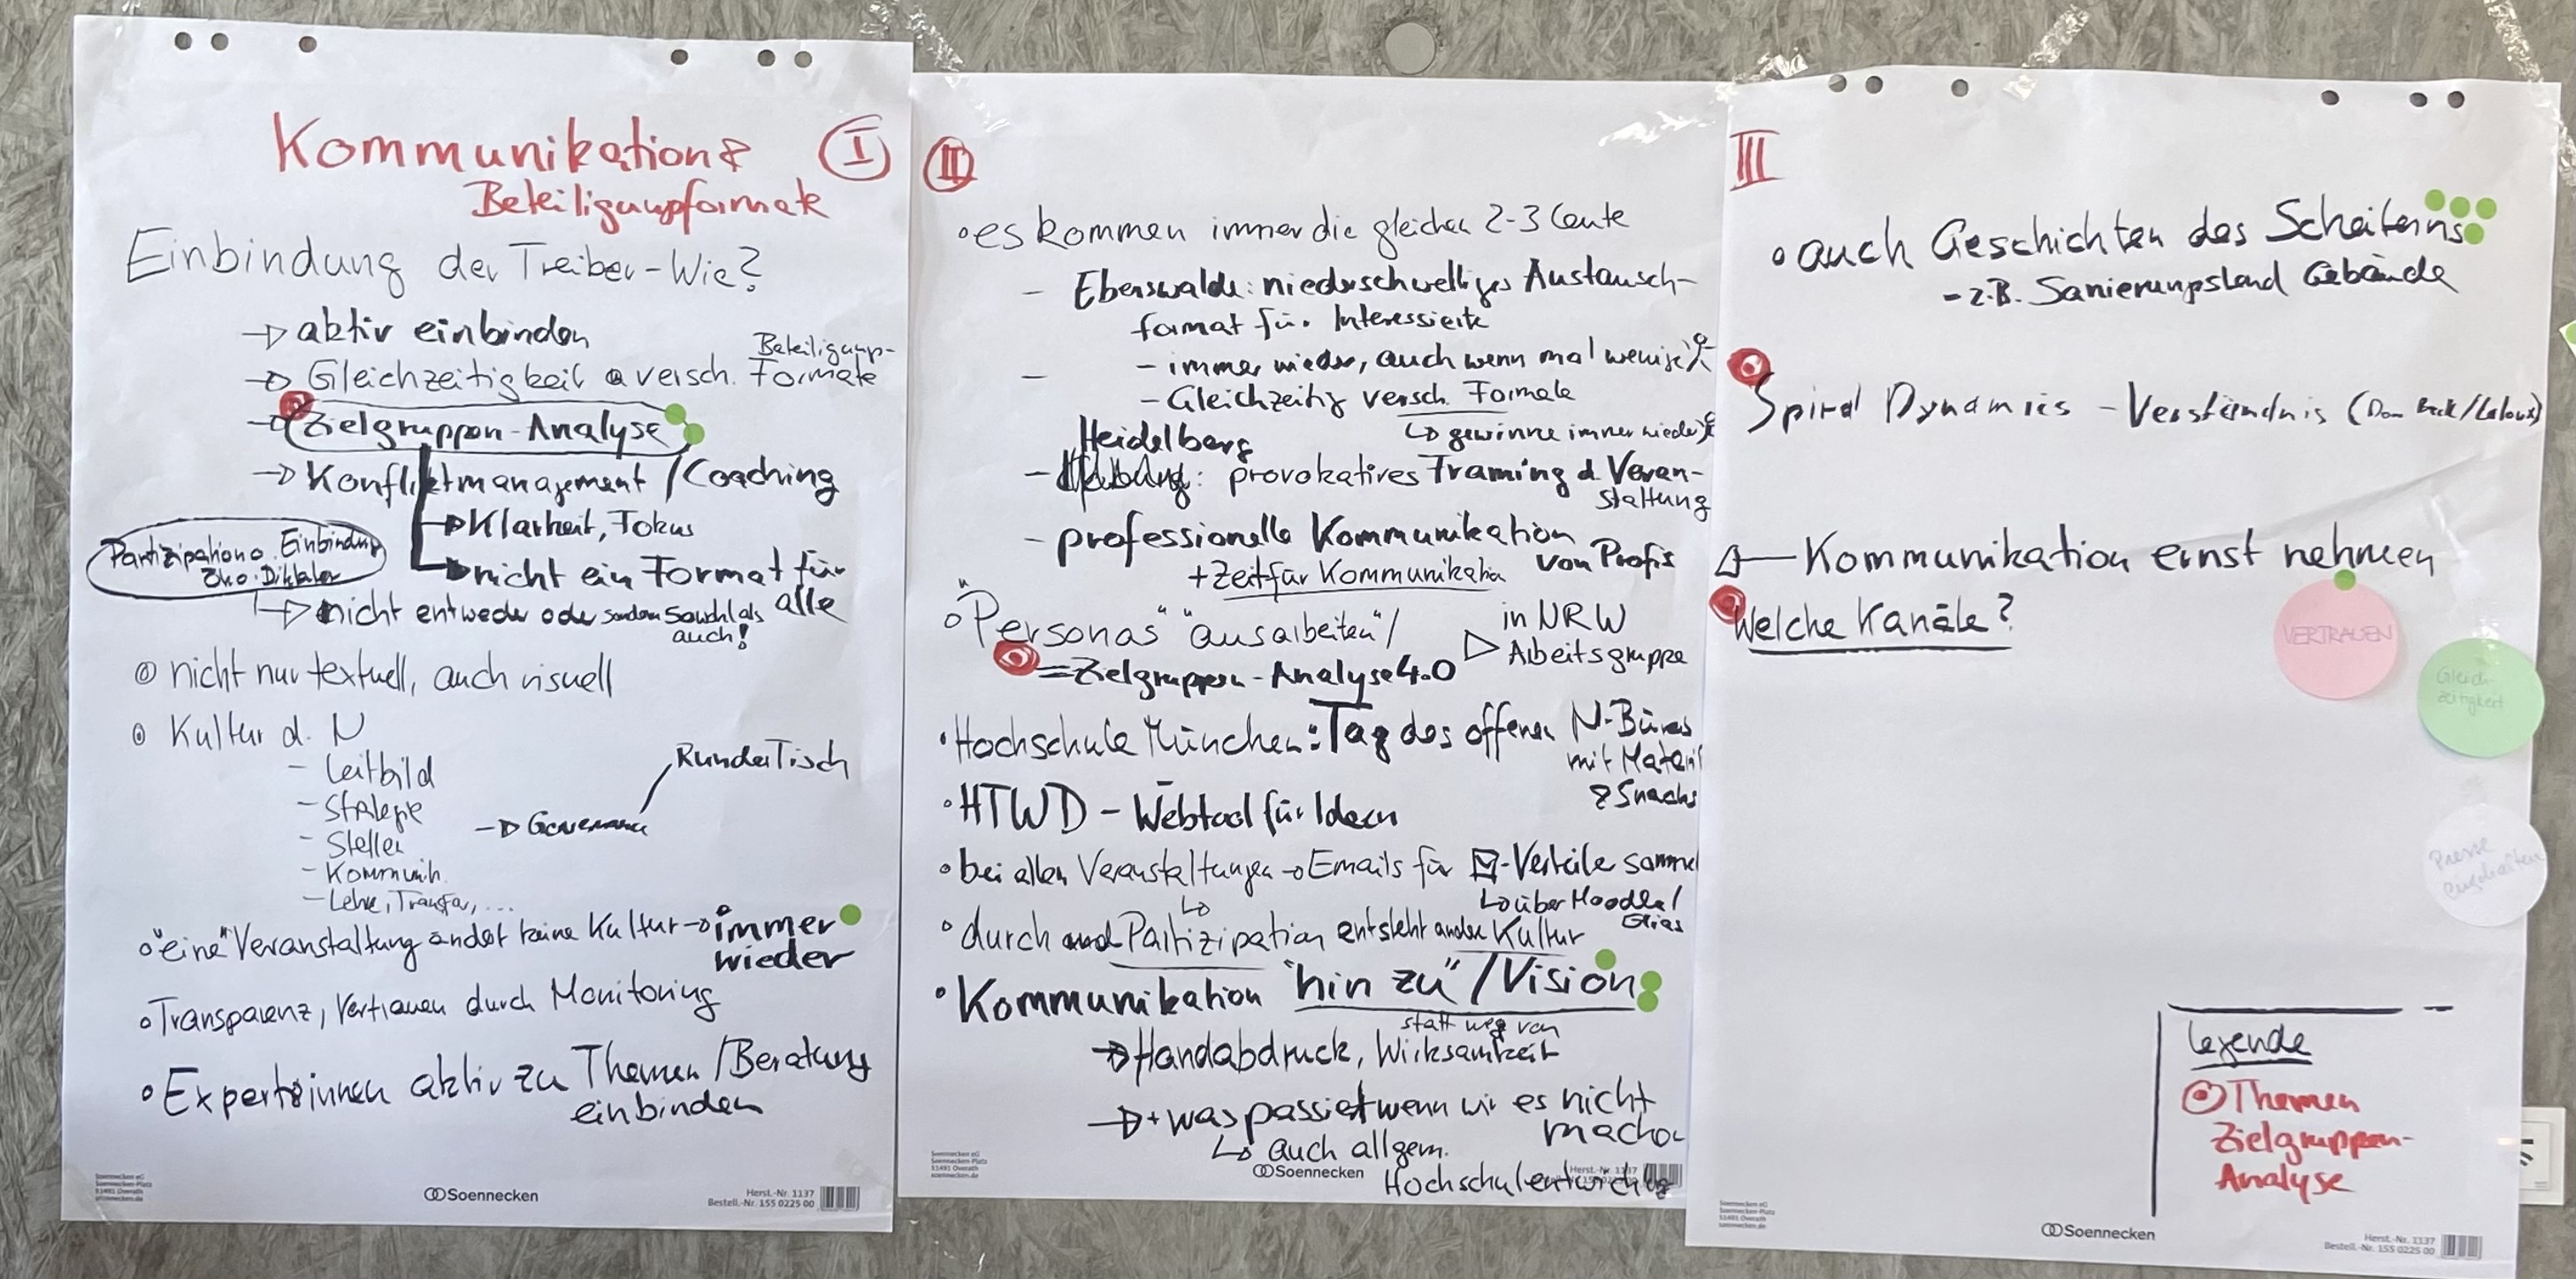 Kommunikation &
Beteiligungsformate
I
Einbindung der Treiber - Wie?
→ aktiv einbinden
→ Gleichzeitigkeit versch. Beteiligungs-
Formate
→ Zielgruppen-Analyse
→ Konfliktmanagement / Coaching
→ Klarheit, Fokus
→ nicht ein Format für
alle
Partizipation o. Einbindung
Öko-Diktatur
→ nicht entweder oder sondern sowohl als
auch!
nicht nur textuell, auch visuell
Kultur d. N
- Leitbild
- Strategie
- Stellen
- Kommunik.
- Lehre, Transfer, ...
→ Governance
Runder Tisch
"eine" Veranstaltung ändert keine Kultur → immer
wieder
Transparenz, Vertrauen durch Monitoring
Expert:innen aktiv zu Themen / Beratung
einbinden
Soennecken eG
Soennecken-Platz
51491 Overath
soennecken.de
Soennecken
Herst.-Nr. 1137
Bestell.-Nr. 155 0225 00
II
es kommen immer die gleichen 2-3 Leute
- Eberswalde: niederschwelliges Austausch-
format für Interessierte
- immer wieder, auch wenn mal wenige
- Gleichzeitig versch. Formate
↳ gewinne immer wieder
Heidelberg
- : provokatives Framing d Veran-
staltung
- professionelle Kommunikation
von Profis
+ Zeit für Kommunikation
"Personas" "ausarbeiten" /
= Zielgruppen-Analyse 4.0
▷ in NRW
Arbeitsgruppe
Hochschule München: Tag des offenen N-Büros
mit Material
& Snacks
HTWD - Webtool für Ideen
bei allen Veranstaltungen → Emails für ✉-Verteiler sammel
↳ über Moodle /
durch Partizipation entsteht andere Kultur
Kommunikation "hin zu" / Vision
statt weg von
→ Handabdruck, Wirksamkeit
→ + was passiert wenn wir es nicht
machen
↳ auch allgem.
Hochschulentwicklg
Soennecken eG
Soennecken-Platz
51491 Overath
soennecken.de
Soennecken
Herst.-Nr. 1137
III
auch Geschichten des Scheiterns
- z.B. Sanierungsstand Gebäude
Spiral Dynamics - Verständnis (Don Beck / Laloux)
Kommunikation ernst nehmen
Welche Kanäle?
VERTRAUEN
Gleich-
zeitigkeit
Presse
Legende
Themen
Zielgruppen-
Analyse
Soennecken eG
Soennecken-Platz
51491 Overath
soennecken.de
Soennecken
Herst.-Nr. 1137
Bestell.-Nr. 155 0225 00